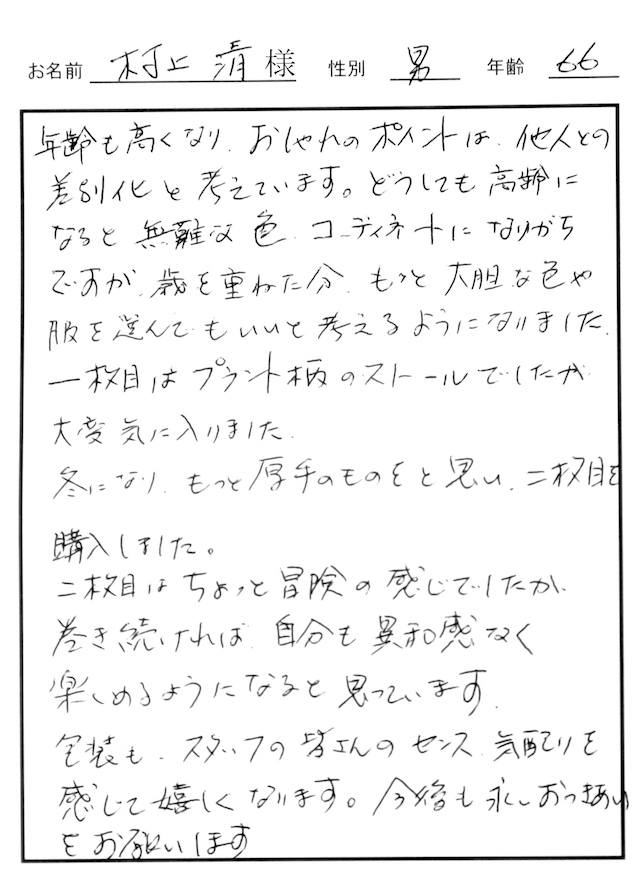 お名前 村上 清 様 性別 男 年齢 66
年齢も高くなり、おしゃれのポイントは、他人との
差別化と考えています。どうしても高齢に
なると無難な色、コーディネートになりがち
ですが、歳を重ねた分、もっと大胆な色や
服を選んでもいいと考えるようになりました。
一枚目はプラント柄のストールでしたが
大変気に入りました。
冬になり、もっと厚手のものをと思い、二枚目を
購入しました。
二枚目はちょっと冒険の感じでしたが、
巻き続ければ、自分も異和感なく
楽しめるようになると思っています。
包装も、スタッフの皆さんのセンス、気配りを
感じて嬉しくなります。今後も永いおつきあい
をお願いします